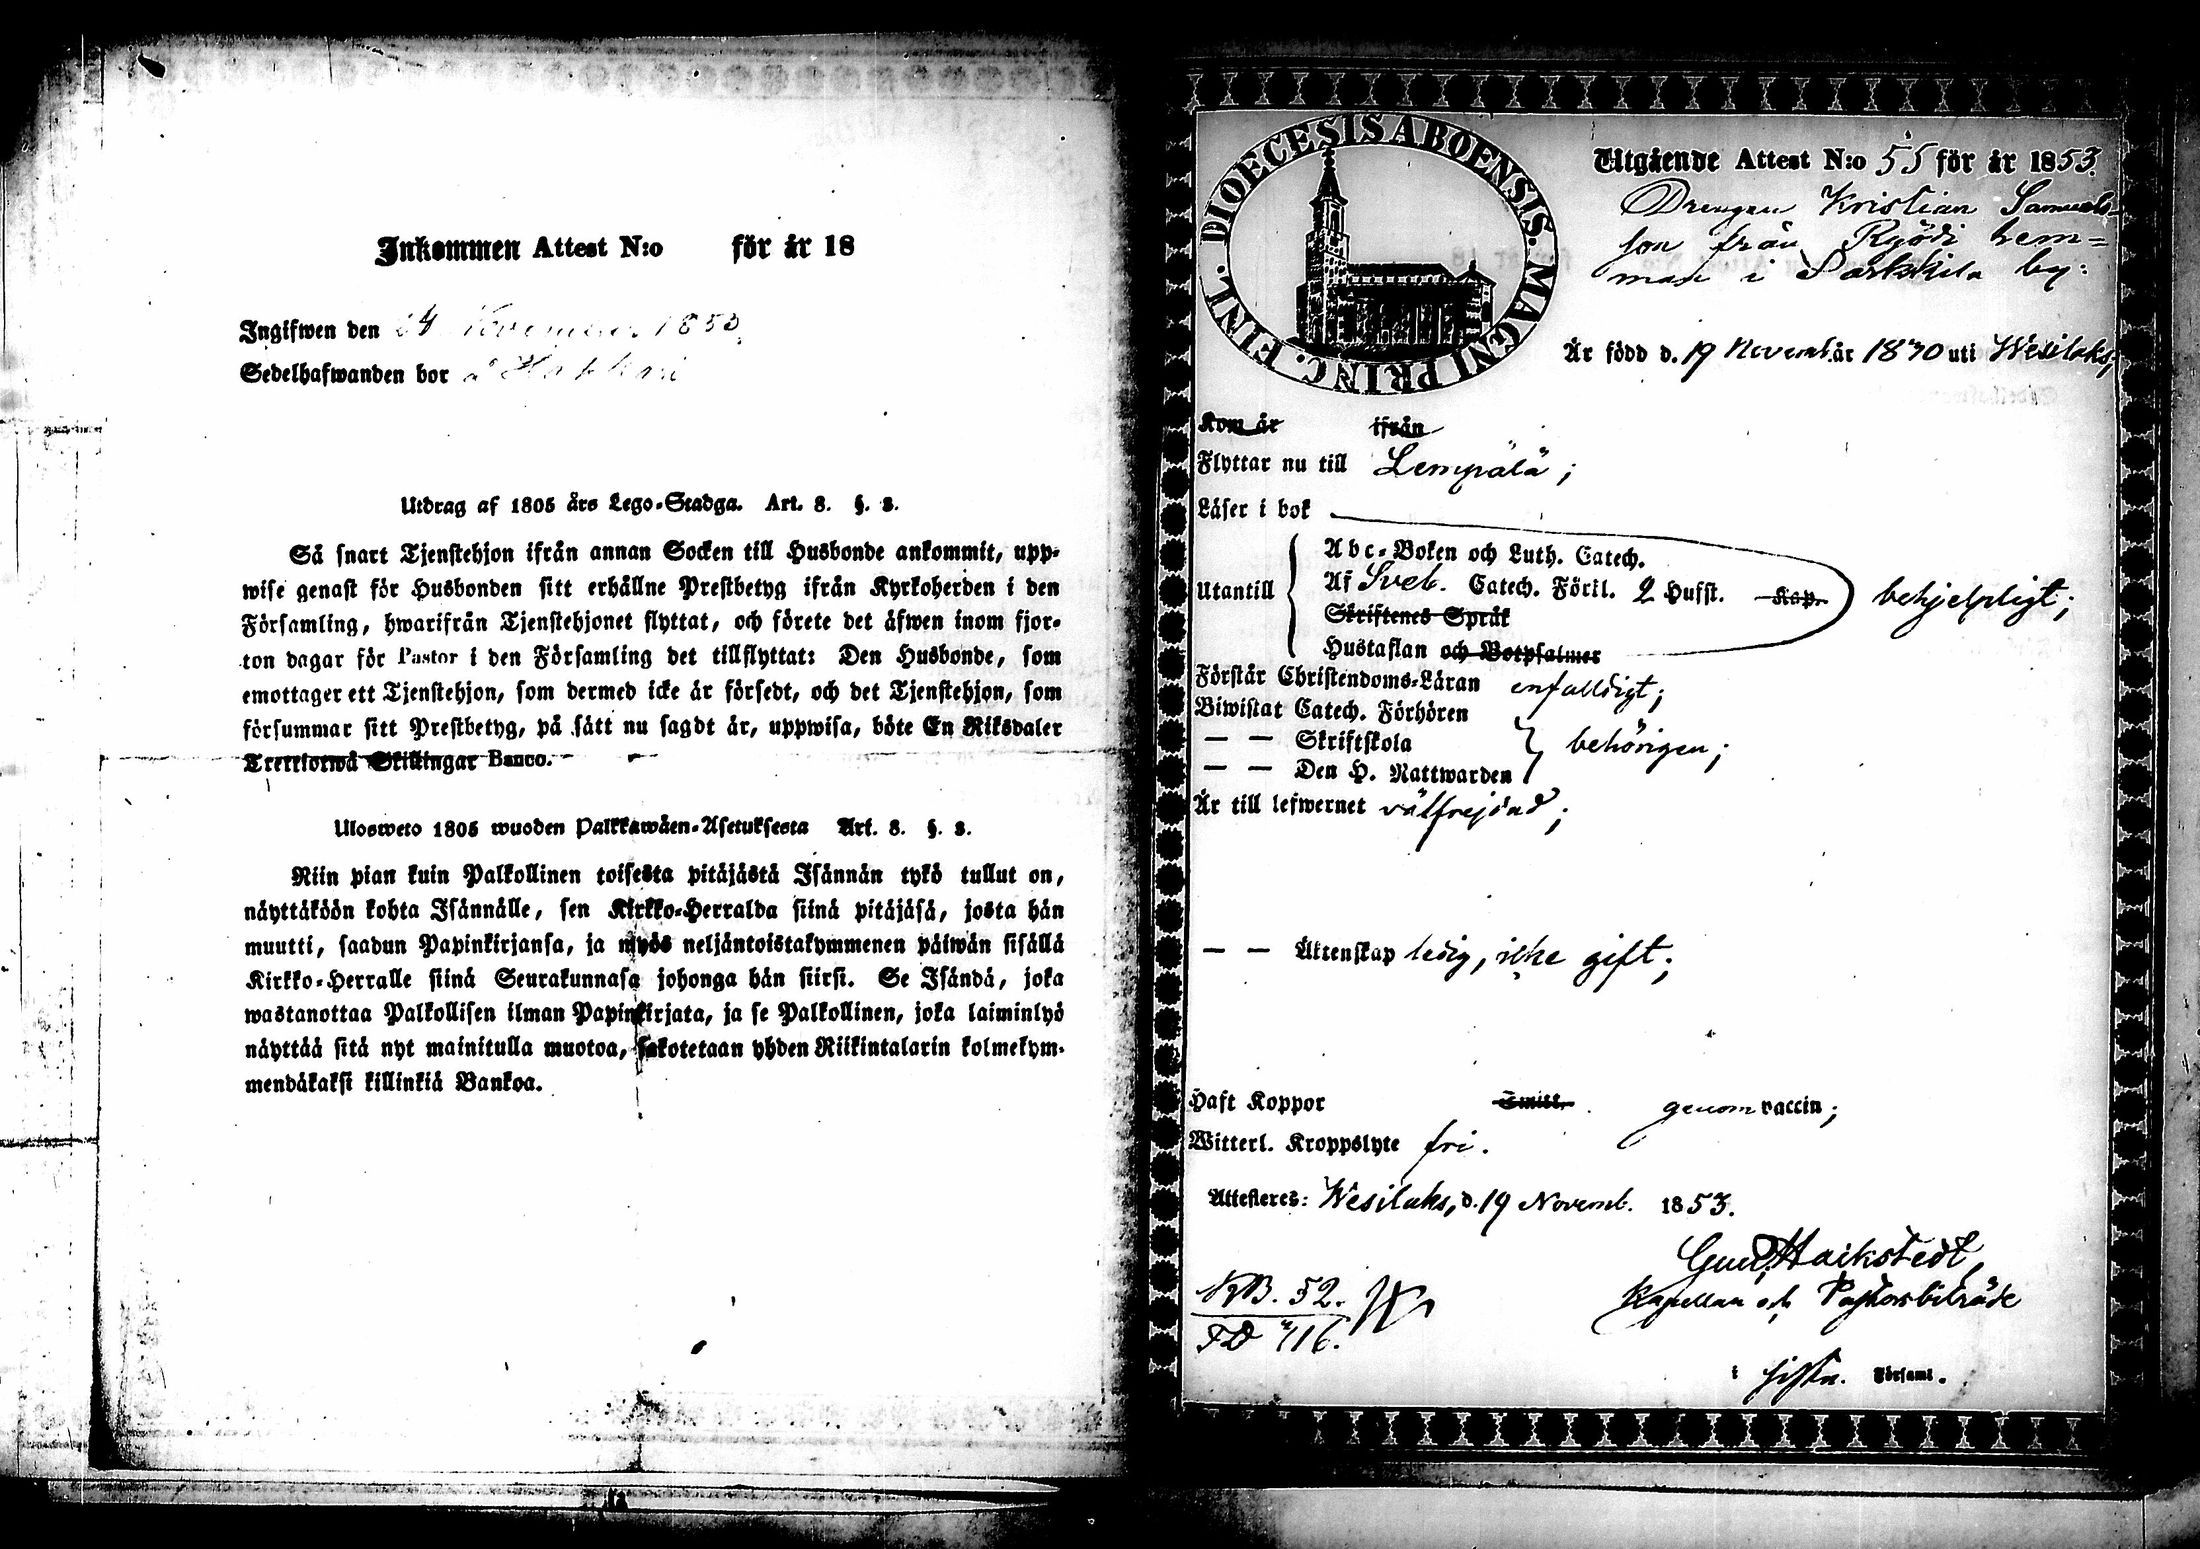 Inkommen Attest N:o för år 18
Ingifwen den 24 November 1853.
Sedelhafwanden bor å Hakkari
Utdrag af 1805 års Lego-Stadga. Art. 8. §. 8.
Så snart Tjenstehjon ifrån annan Socken till Husbonde ankommit, upp-
wise genast för Husbonden sitt erhållne Prestbetyg ifrån Kyrkoherden i den
Församling, hwarifrån Tjenstehjonet flyttat, och förete det äfwen inom fjor-
ton dagar för Pastor i den Församling det tillflyttat: Den Husbonde, som
emottager ett Tjenstehjon, som dermed icke är försedt, och det Tjenstehjon, som
försummar sitt Prestbetyg, på sätt nu sagdt är, uppwisa, böte En Riksdaler
Trettiotwå Skillingar Banco.
Ulosweto 1805 wuoden Palkkawäen-Asetuksesta Art. 8. §. 8.
Niin pian kuin Palkollinen toisesta pitäjästä Isännän tykö tullut on,
näyttäköön kohta Isännälle, sen Kirkko-Herralda siinä pitäjäsä, josta hän
muutti, saadun Papinkirjansa, ja myös neljäntoistakymmenen päiwän sisällä
Kirkko-Herralle siinä Seurakunnasa johonga hän siirsi. Se Isändä, joka
wastanottaa Palkollisen ilman Papinkirjata, ja se Palkollinen, joka laiminlyö
näyttää sitä nyt mainitulla muotoa, sakotetaan yhden Riikintalarin kolmekym-
mendäkaksi killinkiä Bankoa.
DIOECESIS ABOENSIS. MAGNI PRINC. FINL.
Utgående Attest N:o 55 för år 1853.
Drengen Kristian Samuels-
son från Ryödi hem=
man i by:
Är född d. 19 Novemb. år 1830 uti Wesilaks;
Kom år ifrån
Flyttar nu till Lempälä;
Läser i bok
Utantill
Abc-Boken och Luth. Catech.
Af Sveb. Catech. Förkl. 2 Hufst. Kap. behjelpligt;
Skriftenes Språk
Hustaflan och Botpsalmer
Förstår Christendoms-Läran enfalldigt;
Biwistat Catech. Förhören
— — Skriftskola behörigen;
— — Den H. Nattwarden
Är till lefwernet välfrejdad;
— — Äktenskap ledig, icke gift;
Haft Koppor Smitt. genom vaccin;
Witterl. Kroppslyte fri.
Attesteres: Wesilaks, d. 19 Novemb. 1853.
Gust. Haikstedt,
Kapellan och Pastorsbiträde
NB. 52.
FD 716.
i Församl.